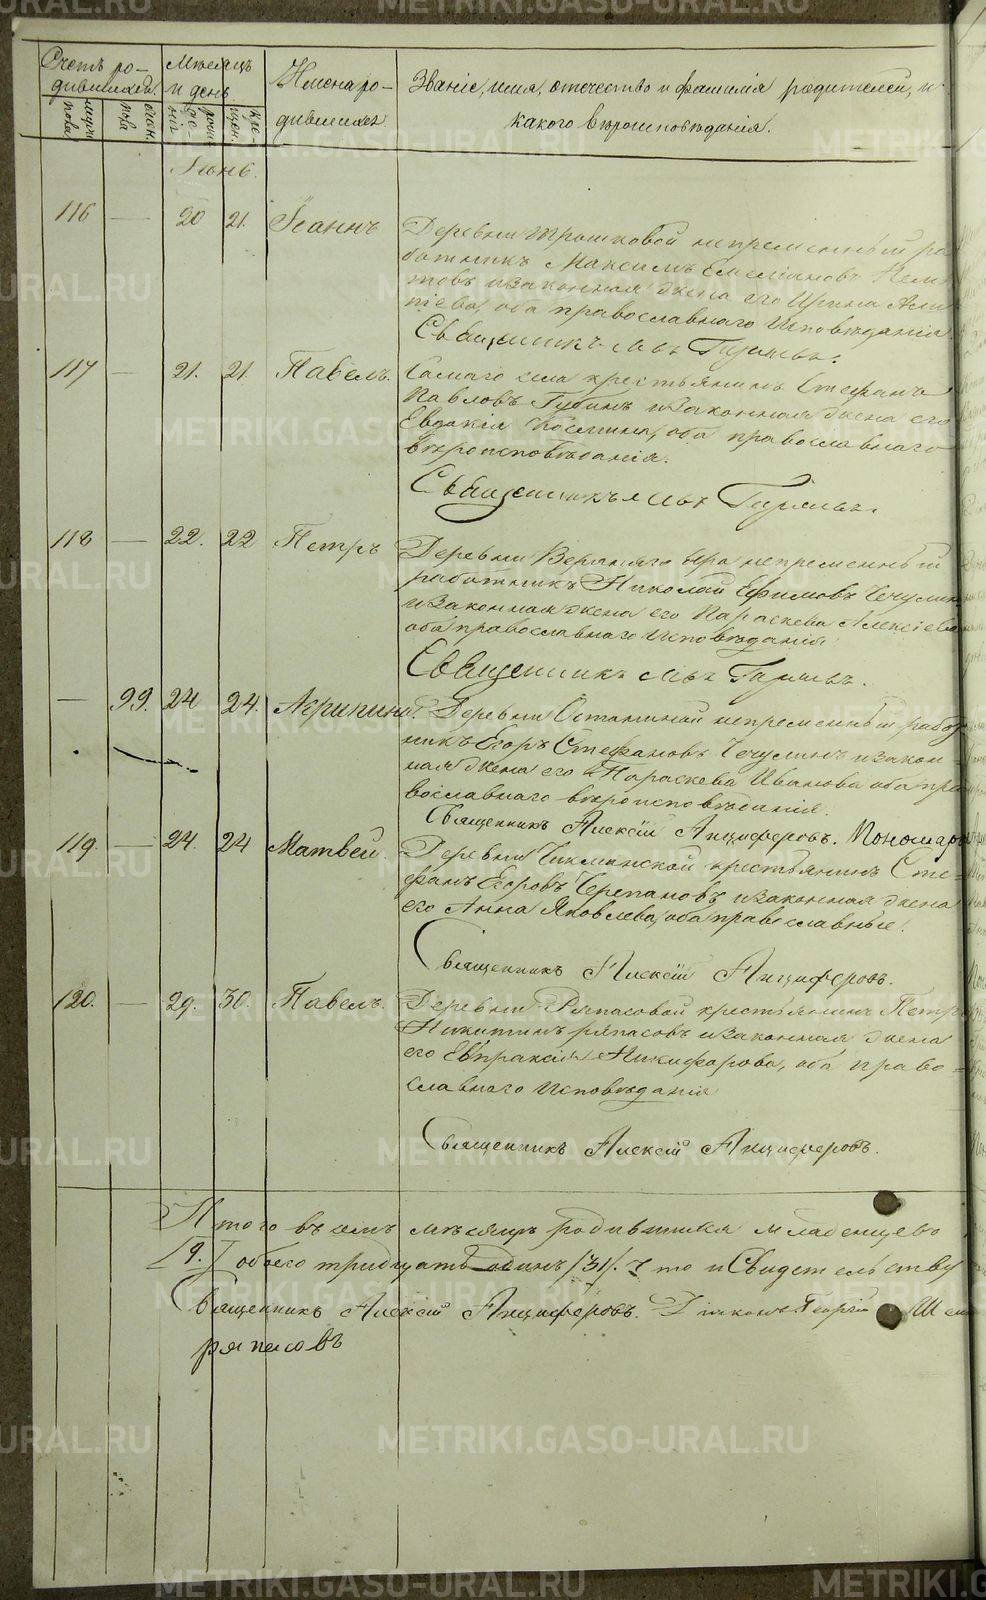 Счетъ ро-
дившихся.
Мѣсяцъ
и день
Имена ро-
дившихся
Званіе, имя, отечество и фамилія родителей, и
какого вѣроисповѣданія.
муж. пола
жен. пола
рожденія
крещен.
Іюнь.
116 — 20 21. Іоаннъ
Деревни Трошковой непременный ра
ботникъ Максимъ Емелiановъ
товъ и законная жена его Ирина
піева, оба православнаго исповѣданія
Священникъ Левъ
117 — 21. 21. Павелъ.
Самаго села крестьянинъ Стефанъ
Павловъ Губинъ и законная жена его
Евдокія Косьмина, оба православнаго
вѣроисповѣданія.
Священникъ Левъ
118 — 22. 22 Петръ
Деревни непременный
работникъ Николай Ефимовъ Чечулин
и законная жена его Параскева Алексіева
оба православнаго исповѣданія
Священникъ Левъ
— 99. 24 24. Агрипина.
Деревни Останиной непременный работ
никъ Егоръ Стефановъ Чечулинъ и закон-
ная жена его Параскева Иванова оба пра
вославнаго вѣроисповѣданія.
Священникъ Алексій Анциферовъ. Пономарь
119. — 24. 24 Матвей.
Деревни крестьянинъ Сте-
фанъ Егоровъ Черепановъ и законная жена
его Анна Яковлева, оба православные.
Священникъ Алексій Анциферовъ.
120. — 29. 30. Павелъ.
Деревни Ряпасовой крестьянинъ Петръ
Никитинъ ряпасовъ и законная жена
его Евпраксія Никифорова, оба право-
славнаго исповѣданія
Священникъ Алексій Анциферовъ.
Итого въ семъ мѣсяцѣ родившихся младенцевъ
обоего тридцать одинъ /31/. что и свидетельству
Священникъ Алексій Анциферовъ. Діаконъ Георгій
METRIKI.GASO-URAL.RU